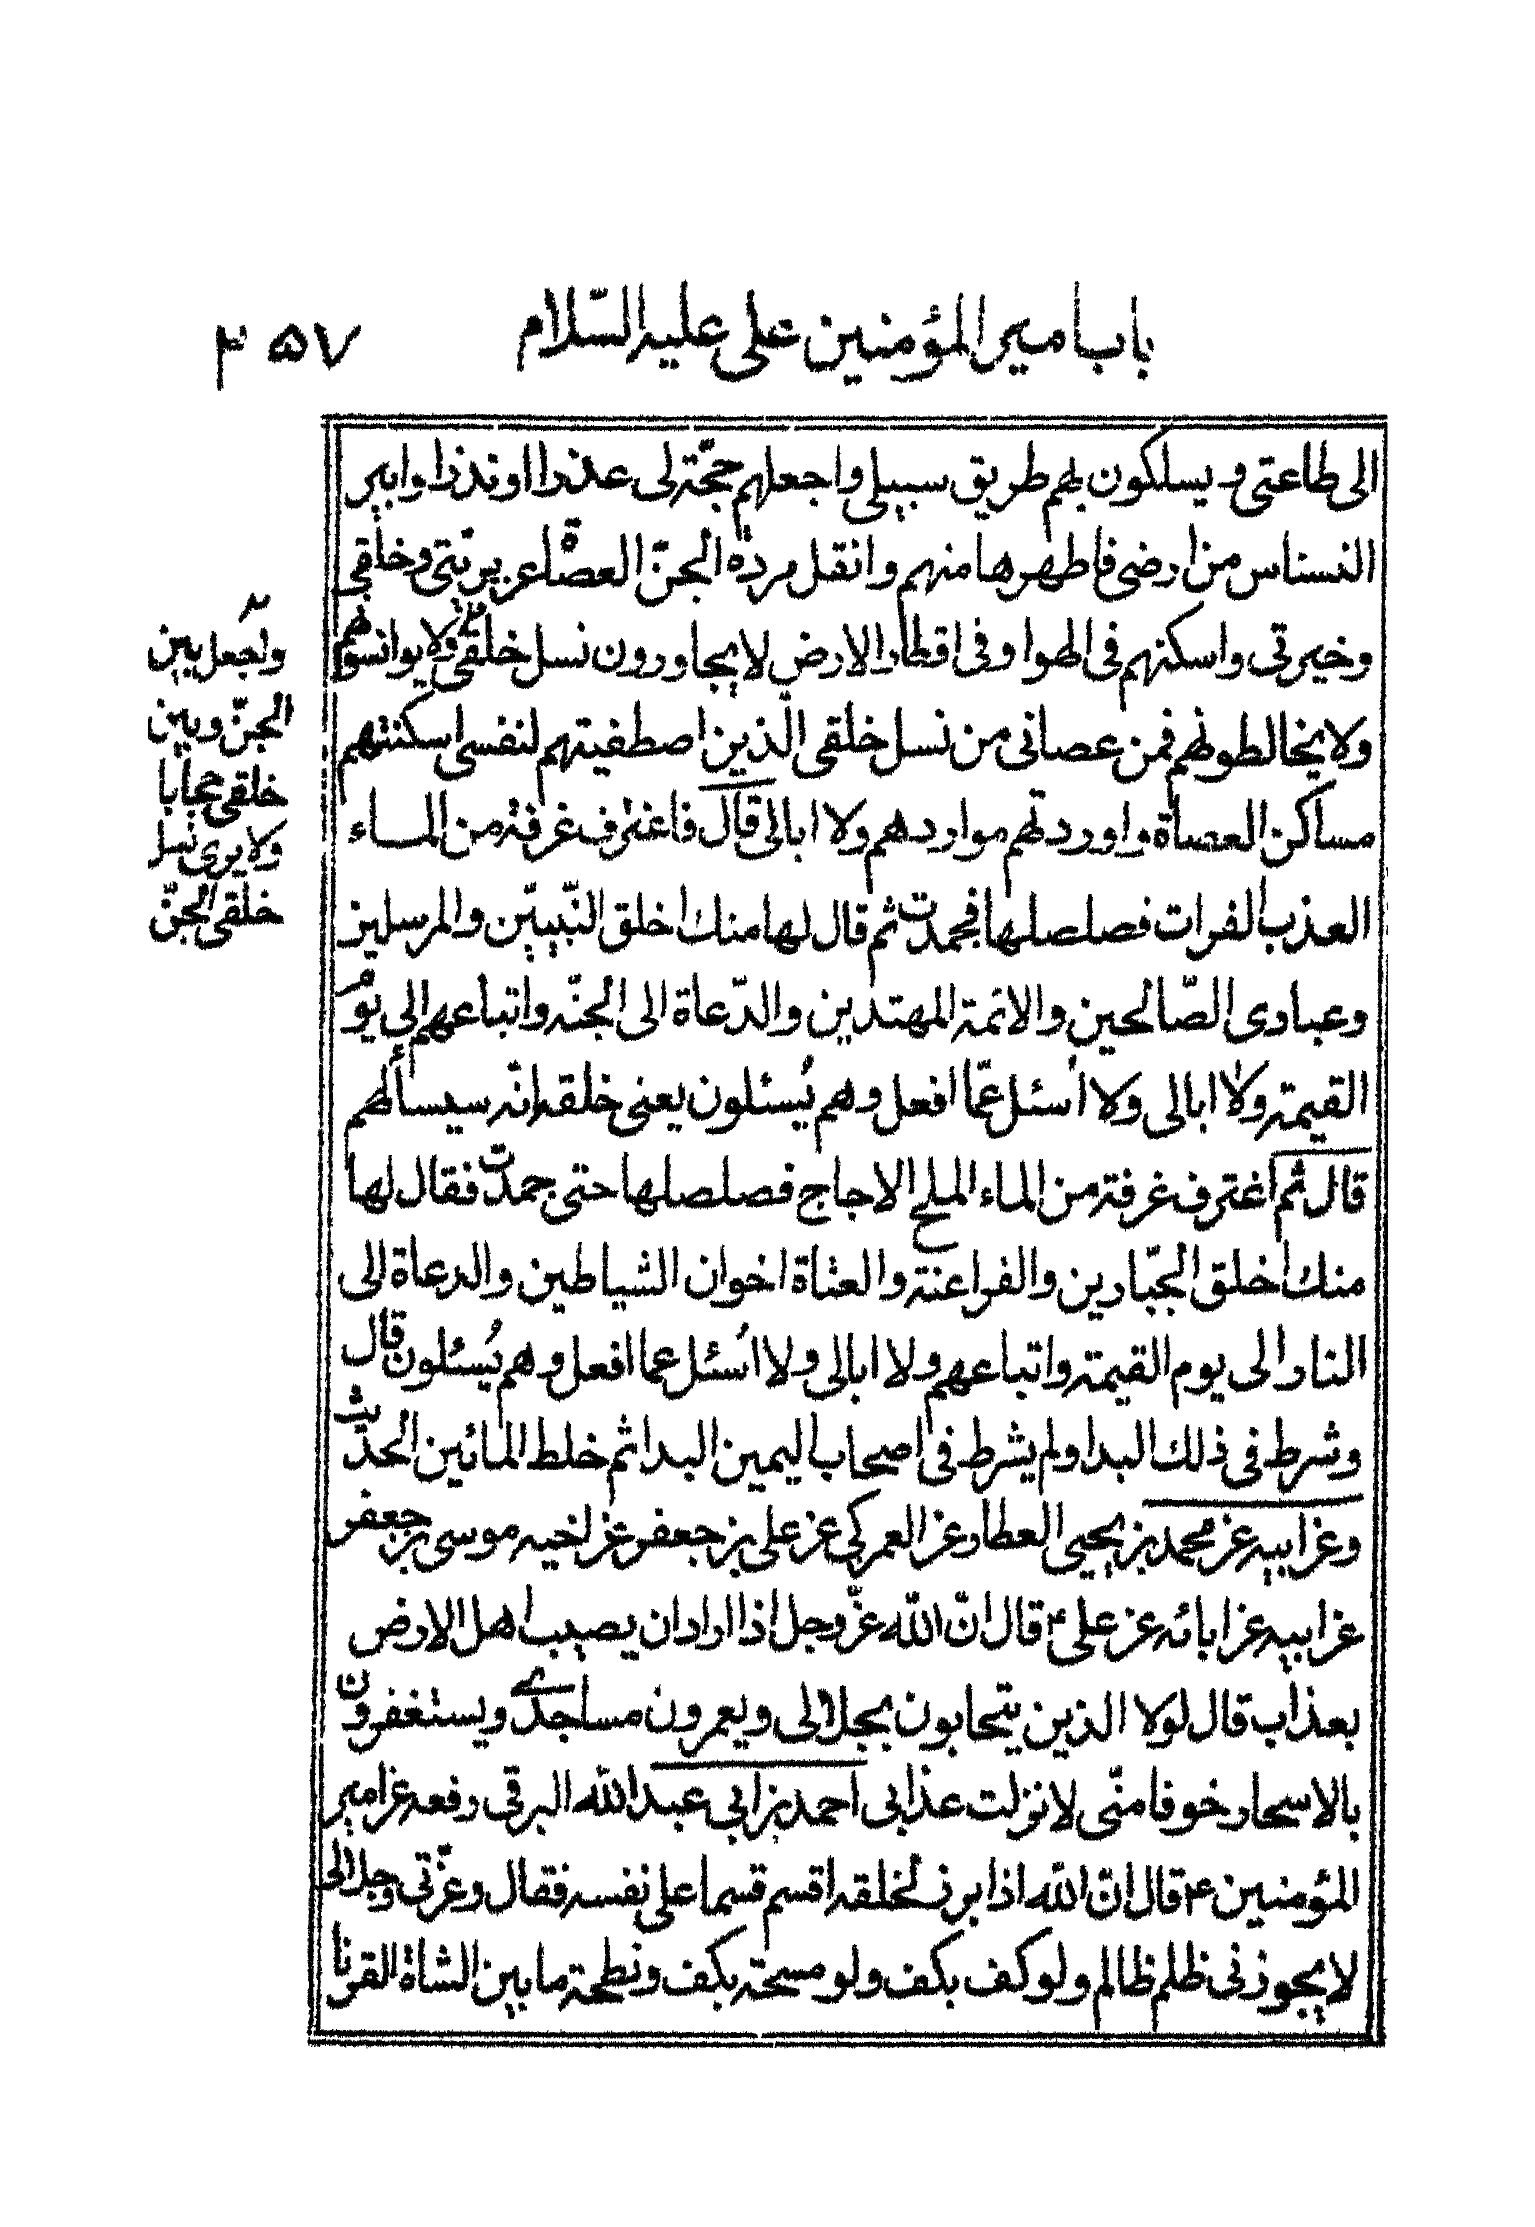 باب امير المؤمنين على عليه السّلام ٢٥٧
الى طاعتى و يسلكون بهم طريق سبيلى واجعلهم حجّة لى عذرا اونذرا وابير
النسناس من ارضى فاطهرها منهم وانقل مردة الجنّ العصاة عن بريّتى وخلقى
وخيرتى واسكنهم فى الهوا وفى اقطار الارض لا يجاورون نسل خلقى ولا يوانسونهم
ولا يخالطونهم فمن عصانى من نسل خلقى الّذين اصطفيتهم لنفسى اسكنتهم
مساكن العصاة واوردتهم مواردهم ولا ابالى قال فاغترف غرفة من المـاء
العذب الفرات فصلصلها فجمدت ثم قال لها منك اخلق النّبيين والمرسلين
وعبادى الصّالحين والائمة المهتدين والدّعاة الى الجنّه واتباعهم الى يوم
القيمة ولا ابالى ولا اُسئل عمّا افعل وهم يُسئلون يعنى خلقه إنّه سيسألهم
قال ثم اغترف غرفة من الماء الملح الاجاج فصلصلها حتى جمدت فقال لها
منك اخلق الجبّارين والفراعنة والعتاة اخوان الشياطين والدعاة الى
النار الى يوم القيمة واتباعهم ولا ابالى ولا اُسئل عما افعل وهم يُسئلون قال
وشرط فى ذلك البدا ولم يشرط فى اصحاب اليمين البدا ثم خلط المائين الحديث
وعن ابيه عن محمد بن يحيى العطار عن العمركى عن على بن جعفر عن اخيه موسى بن جعفر
عن ابيه عن ابائه عن على ع قال انّ اللّه عزّوجل اذا اراد ان يصيب اهل الارض
بعذاب قال لولا الذين يتحابون بجلالى ويعمرون مساجدى ويستغفرون
بالاسحار خوفا منّى لانزلت عذابى احمد بن ابي عبد اللّه البرقى رفعه عن امير
المؤمنين ع قال انّ اللّه اذا برز لخلقه اقسم قسما على نفسه فقال وعزّتى وجلالى
لا يجوزنى ظلم ظالم ولو كف بكف ولو مسحة بكف ونطحة ما بين الشاة القرنا
ونجعل بين
الجنّ وبين
خلقى حجابا
ولا يرى نسل
خلقى الجنّ